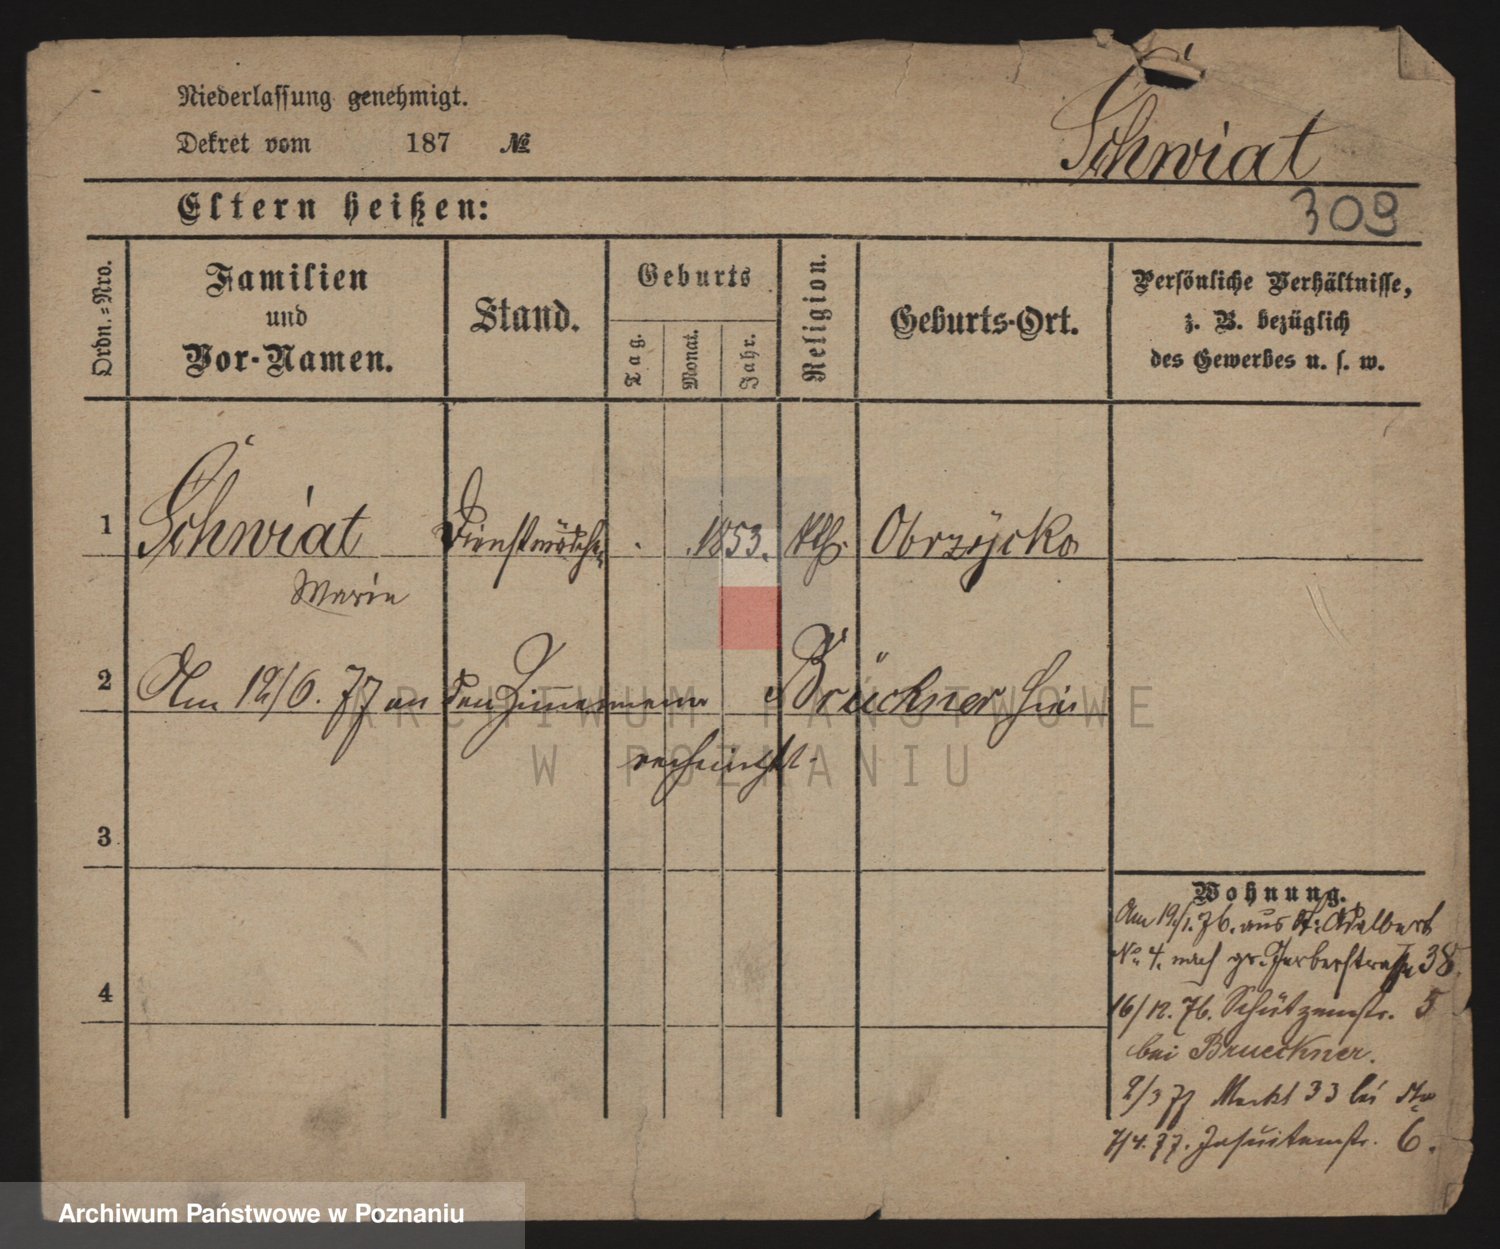 Niederlassung genehmigt.
Dekret vom 187 №
Schwiat
Eltern heißen:
309
Ordn.=Nro.
Familien
und
Vor-Namen.
Stand.
Geburts
Tag.
Monat.
Jahr.
Religion.
Geburts-Ort.
Persönliche Verhältnisse,
z. B. bezüglich
des Gewerbes u. s. w.
1 Schwiat 1853. Kth. Obrzycko
Marie
2 Am 12/6. 77 an den Zimmermann Brückner hier
verheirathet.
3
4
Wohnung.
Am 19/1. 76. aus St: Adalbert
No 4. nach gr. Gerberstrasse 38.
16/12. 76. Schützenstr. 5
bei Brueckner.
2/3 77 Markt 33 bei
7/4. 77. Jesuitenstr. 6.
ARCHIWUM PAŃSTWOWE
W POZNANIU
Archiwum Państwowe w Poznaniu